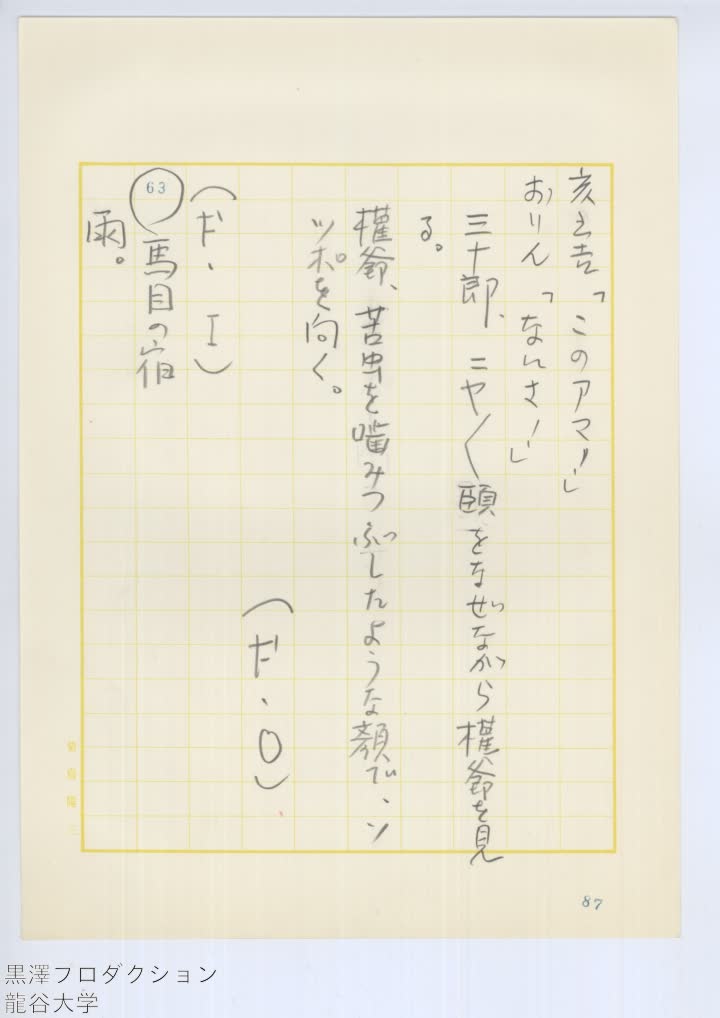 亥之吉「このアマ!」
おりん「なにさ!」
三十郎、ニヤ〳〵頤をなぜながら權爺を見
る。
權爺、苦虫を噛みつぶしたような顔で、ソ
ッポを向く。
(F・O)
(F・I)
63 馬目の宿
雨。
菊島隆三
87
黒澤プロダクション
龍谷大学